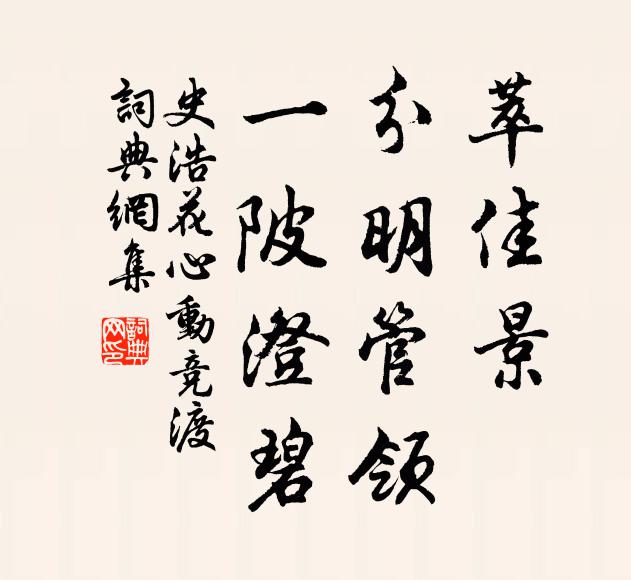 萃佳景
分明管領
一陂澄碧
史浩花心動競渡
詞典網集
詞典網印